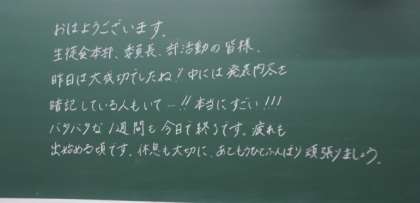 おはようございます。
生徒会本部、委員長、部活動の皆様、
昨日は大成功でしたね!!中には発表内容を
暗記している人もいて…!!本当にすごい!!!
バタバタな1週間も今日で終りです。疲れも
出始める頃です。休息も大切に、あともうひとふんばり頑張りましょう。